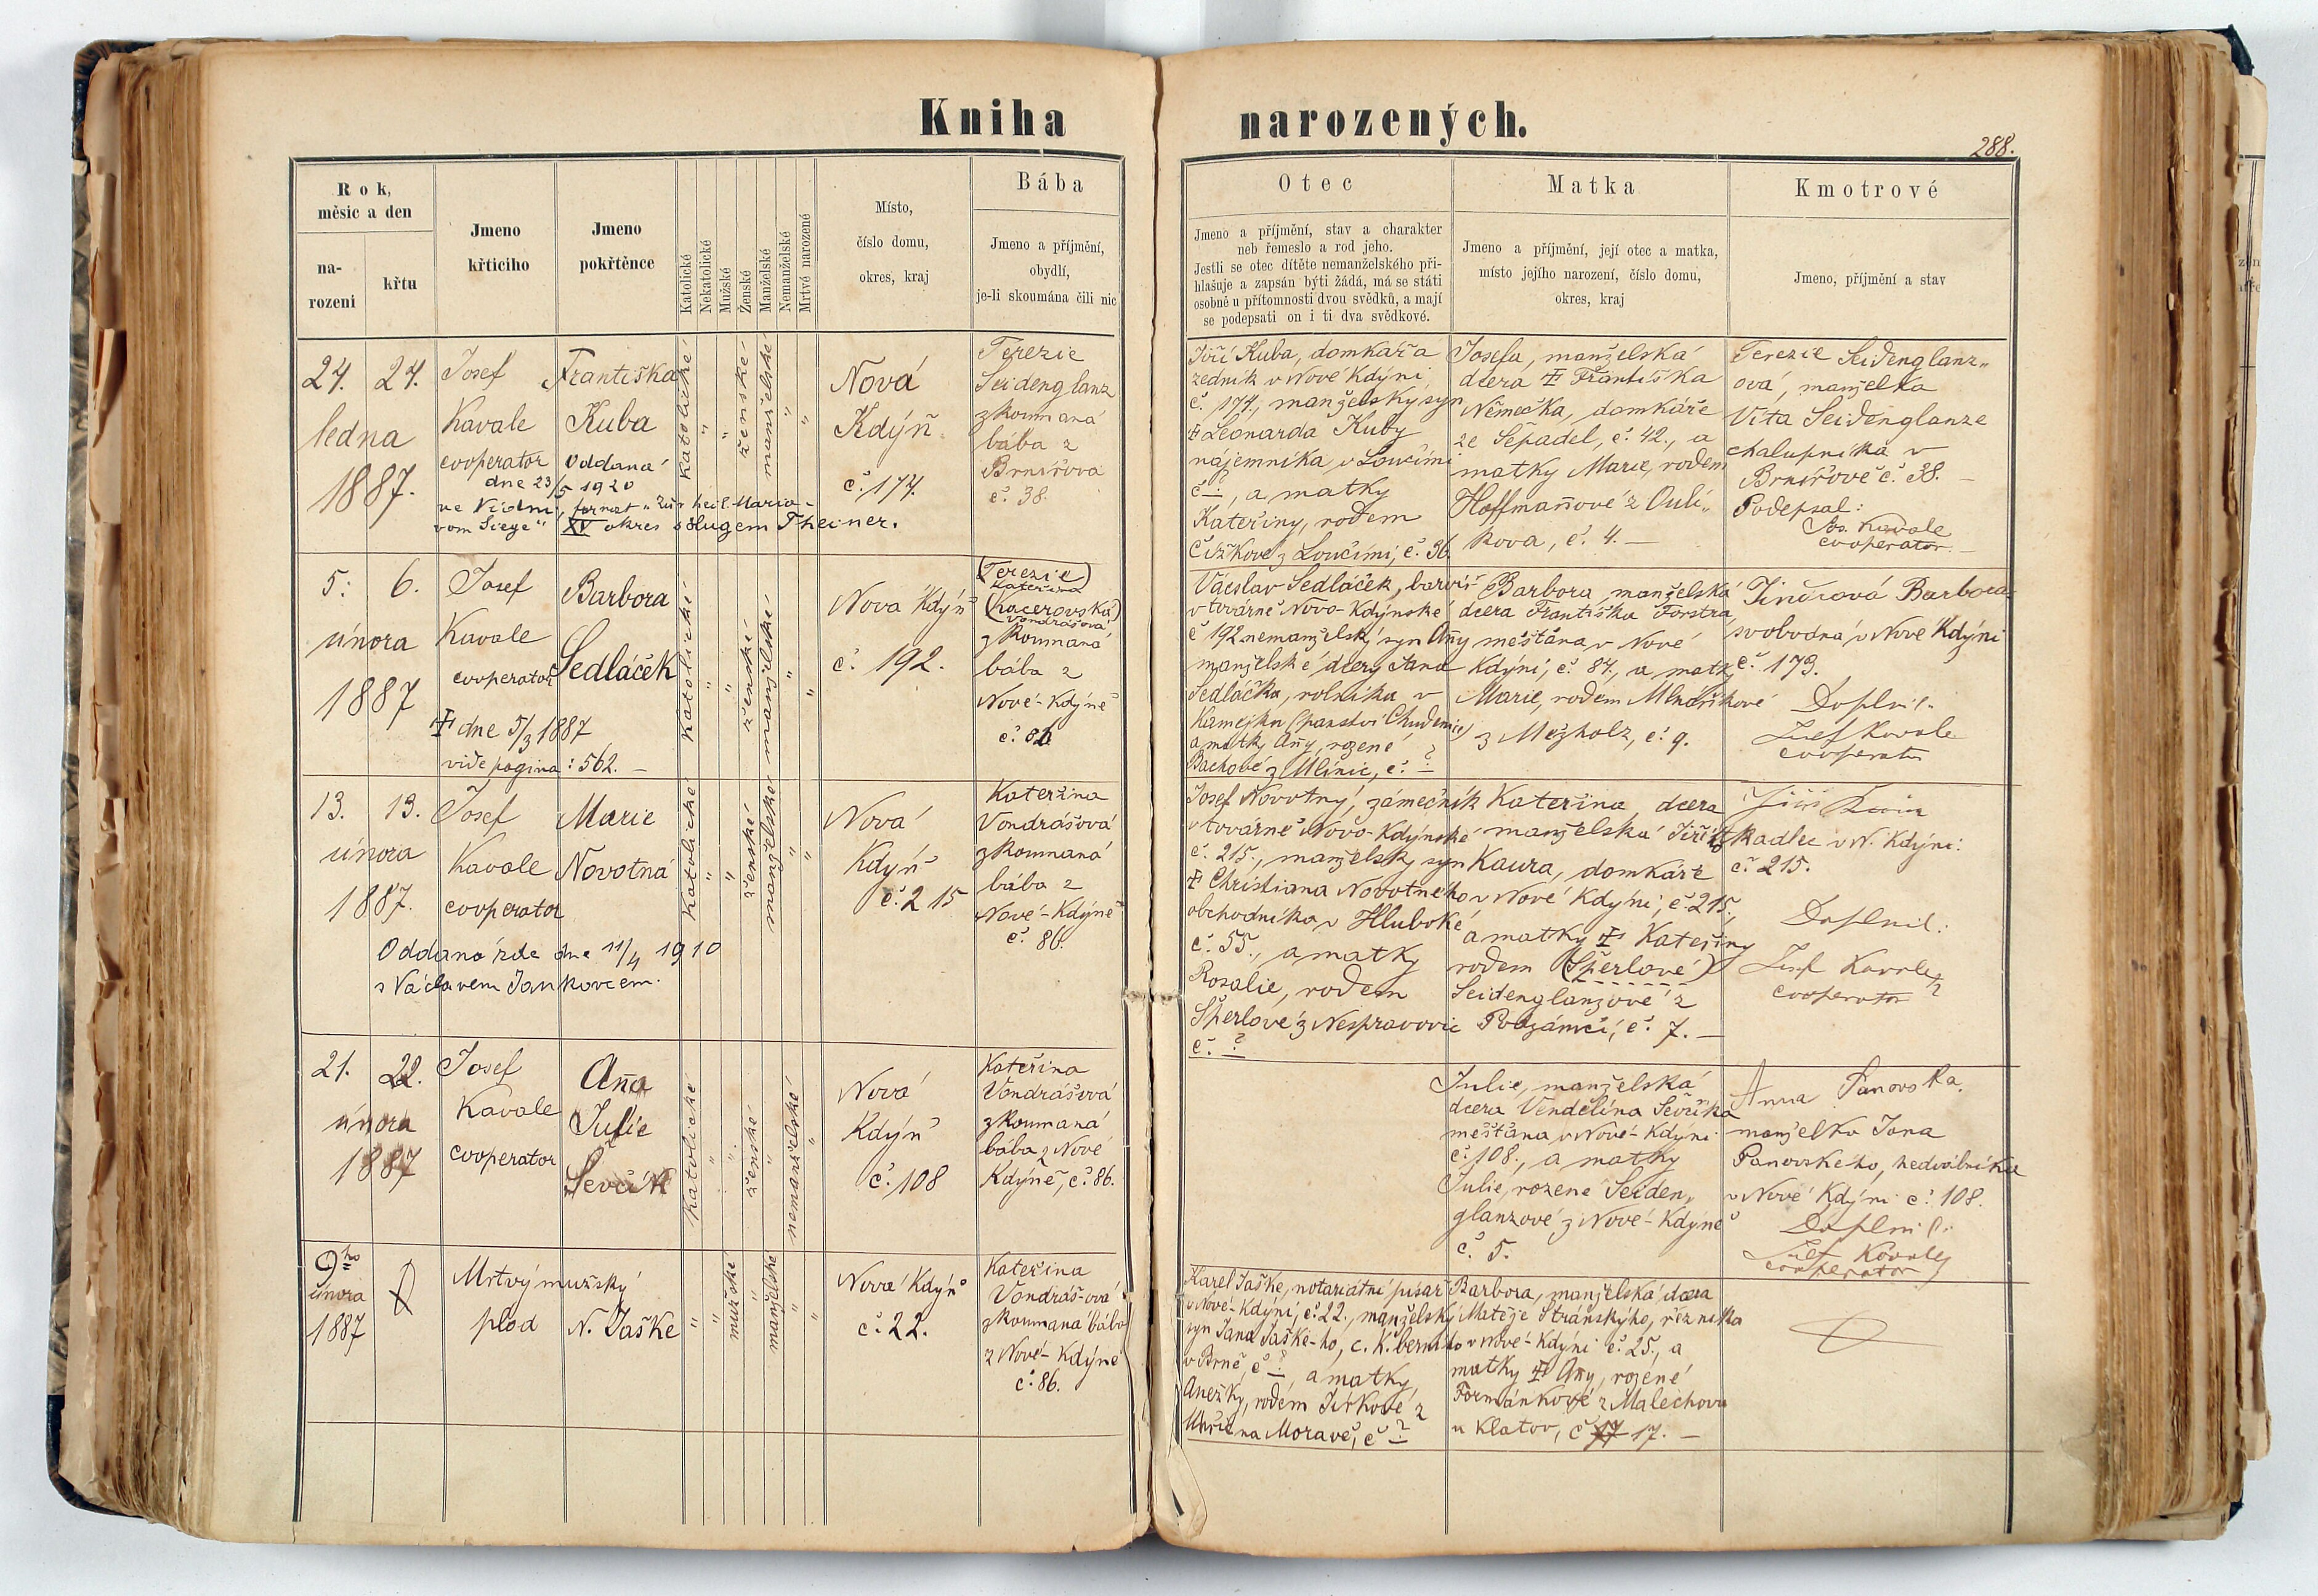 Kniha narozených.
288.
Rok,
měsíc a den
na-
rozeni
křtu
Jmeno
křticiho
Jmeno
pokřtěnce
Katolické
Nekatolické
Mužské
Ženské
Manželské
Nemanželské
Mrtvé narozené
Místo,
číslo domu,
okres, kraj
Bába
Jmeno a příjmění,
obydlí,
je-li skoumána čili nic
Otec
Jmeno a příjmění, stav a charakter
neb řemeslo a rod jeho.
Jestli se otec dítěte nemanželského při-
hlašuje a zapsán býti žádá, má se státi
osobně u přítomnosti dvou svědků, a mají
se podepsati on i ti dva svědkové.
Matka
Jmeno a příjmění, její otec a matka,
místo jejího narození, číslo domu,
okres, kraj
Kmotrové
Jmeno, příjmění a stav
24. 24.
ledna
1887.
Josef
Kavale
cooperator
Františka
Kuba
Oddaná
dne 23/5 1920
ve Vídni, fernat „zur heil. Maria
vom Siege" XV okres s Hugem Theiner.
katolické
"
"
ženské
manželské
"
"
Nová
Kdýň
č. 174.
Terezie
Seidenglanz
zkoumaná
bába z
Brnířova
č. 38.
Jiří Kuba, domkář a
zedník v Nové Kdýni,
č. 174., manželský syn
† Leonarda Kuby
nájemníka, v Loučimi
č. –, a matky
Kateřiny, rodem
Čížkové z Loučimi, č. 36.
Josefa, manželská
dcera † Františka
Němečka, domkáře
ze Sepadel, č. 42., a
matky Marie, rodem
Hoffmaňové z Oulí„
kova, č. 4. —
Terezie Seidenglanz„
ová, manželka
Víta Seidenglanze
chalupníka v
Brnířově č. 38. —
Podepsal:
Jos. Kavale
cooperator
5. 6.
února
1887
Josef
Kavale
cooperator
Barbora
Sedláček
† dne 5/3 1887
vide pagina: 562. —
katolické
"
"
ženské
manželské
"
"
Nova Kdýň
č. 192.
(Terezie)
Kateřina
(Kacerovská)
Vondrášová
zkoumaná
bába z
Nové-Kdýně
č. 86
Václav Sedláček, barvíř
v továrně Novo-Kdýnské
č 192 nemanželský syn Añy
manželské dcery Jana
Sedláčka, rolníka v
Kamejku (panství Chudenic)
a matky Añy, rozené
Bachobé z Mlínic, č. ?
Barbora, manželská
dcera Františka Forstra,
měštána v Nové
Kdýni, č. 84., a matky
Marie, rodem Mlnaříkové
z Mezholz, č. 9.
Jinčiová Barbora
svobodná v Nové Kdýni
č. 179.
Doplnil.
Josef Kavale
cooperator
13. 13.
února
1887.
Josef
Kavale
cooperator
Marie
Novotná
Oddaná zde dne 11/4 1910
s Václavem Jankovcem.
katolické
"
"
ženské
manželské
"
"
Nová
Kdýň
č. 215
Kateřina
Vondrášová
zkoumaná
bába z
Nové-Kdýně
č. 86.
Josef Novotný, zámečník
v továrně Novo-Kdýnské
č. 215., manželský syn
† Christiana Novotného
obchodníka v Hluboké
č. 55., a matky
Rosalie, rodem
Šperlové z Nespravovic
č. ?
Kateřina dcera
manželská Jiřího
Kaura, domkáře
v Nové Kdýni, č. 215.
a matky † Kateřiny
rodem (Šperlové)
Seidenglanzové z
Podzámčí, č. 7. —
Jiří
tkadlec v N. Kdýni:
č. 215.
Doplnil:
Josef Kavale
cooperator
21. 22.
února
1887
Josef
Kavale
cooperator
Aña
Julie
Ševčík
katolické
"
"
ženské
"
nemanželské
"
Nová
Kdýň
č. 108
Kateřina
Vondrášová
zkoumaná
bába z Nové
Kdýně, č. 86.
Julie, manželská
dcera Vendelína Ševčíka
měštána v Nové-Kdýni
č. 108., a matky
Julie, rozené Seiden„
glanzové z Nové-Kdýně
č. 5.
Anna Panovska,
manželka Jana
Panovského, hedvábníka
v Nové Kdýni č. 108.
Doplnil.
Josef Kavale
cooperator
9ho
února
1887
Mrtvý mužský
plod N. Jaške
"
"
mužské
"
manželské
"
"
Nová Kdýň
č. 22.
Kateřina
Vondráš-ová
zkoumaná bába
z Nové-Kdýně
č. 86.
Karel Jaške, notariátní písař
v Nové-Kdýni, č. 22., manželský
syn Jana Jaške-ho, c. k. berního
v Brně, č. ?, a matky
Anežky, rodem Jírkové z
na Moravě, č. ?
Barbora, manželská dcera
Matěje Stránského, řezníka
v Nové-Kdýni č. 25., a
matky † Añy, rozené
Formánkové z Malechova
u Klatov, č 17 17. —